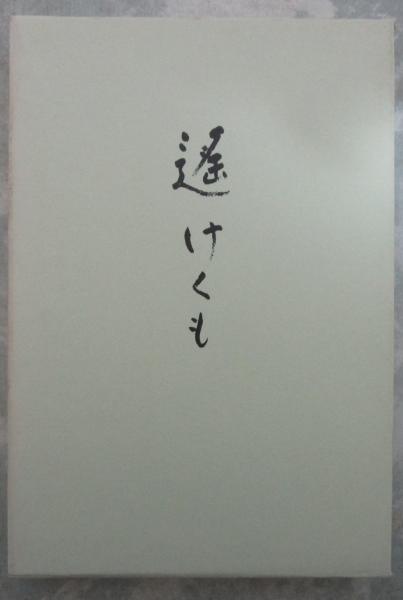 遥けくも